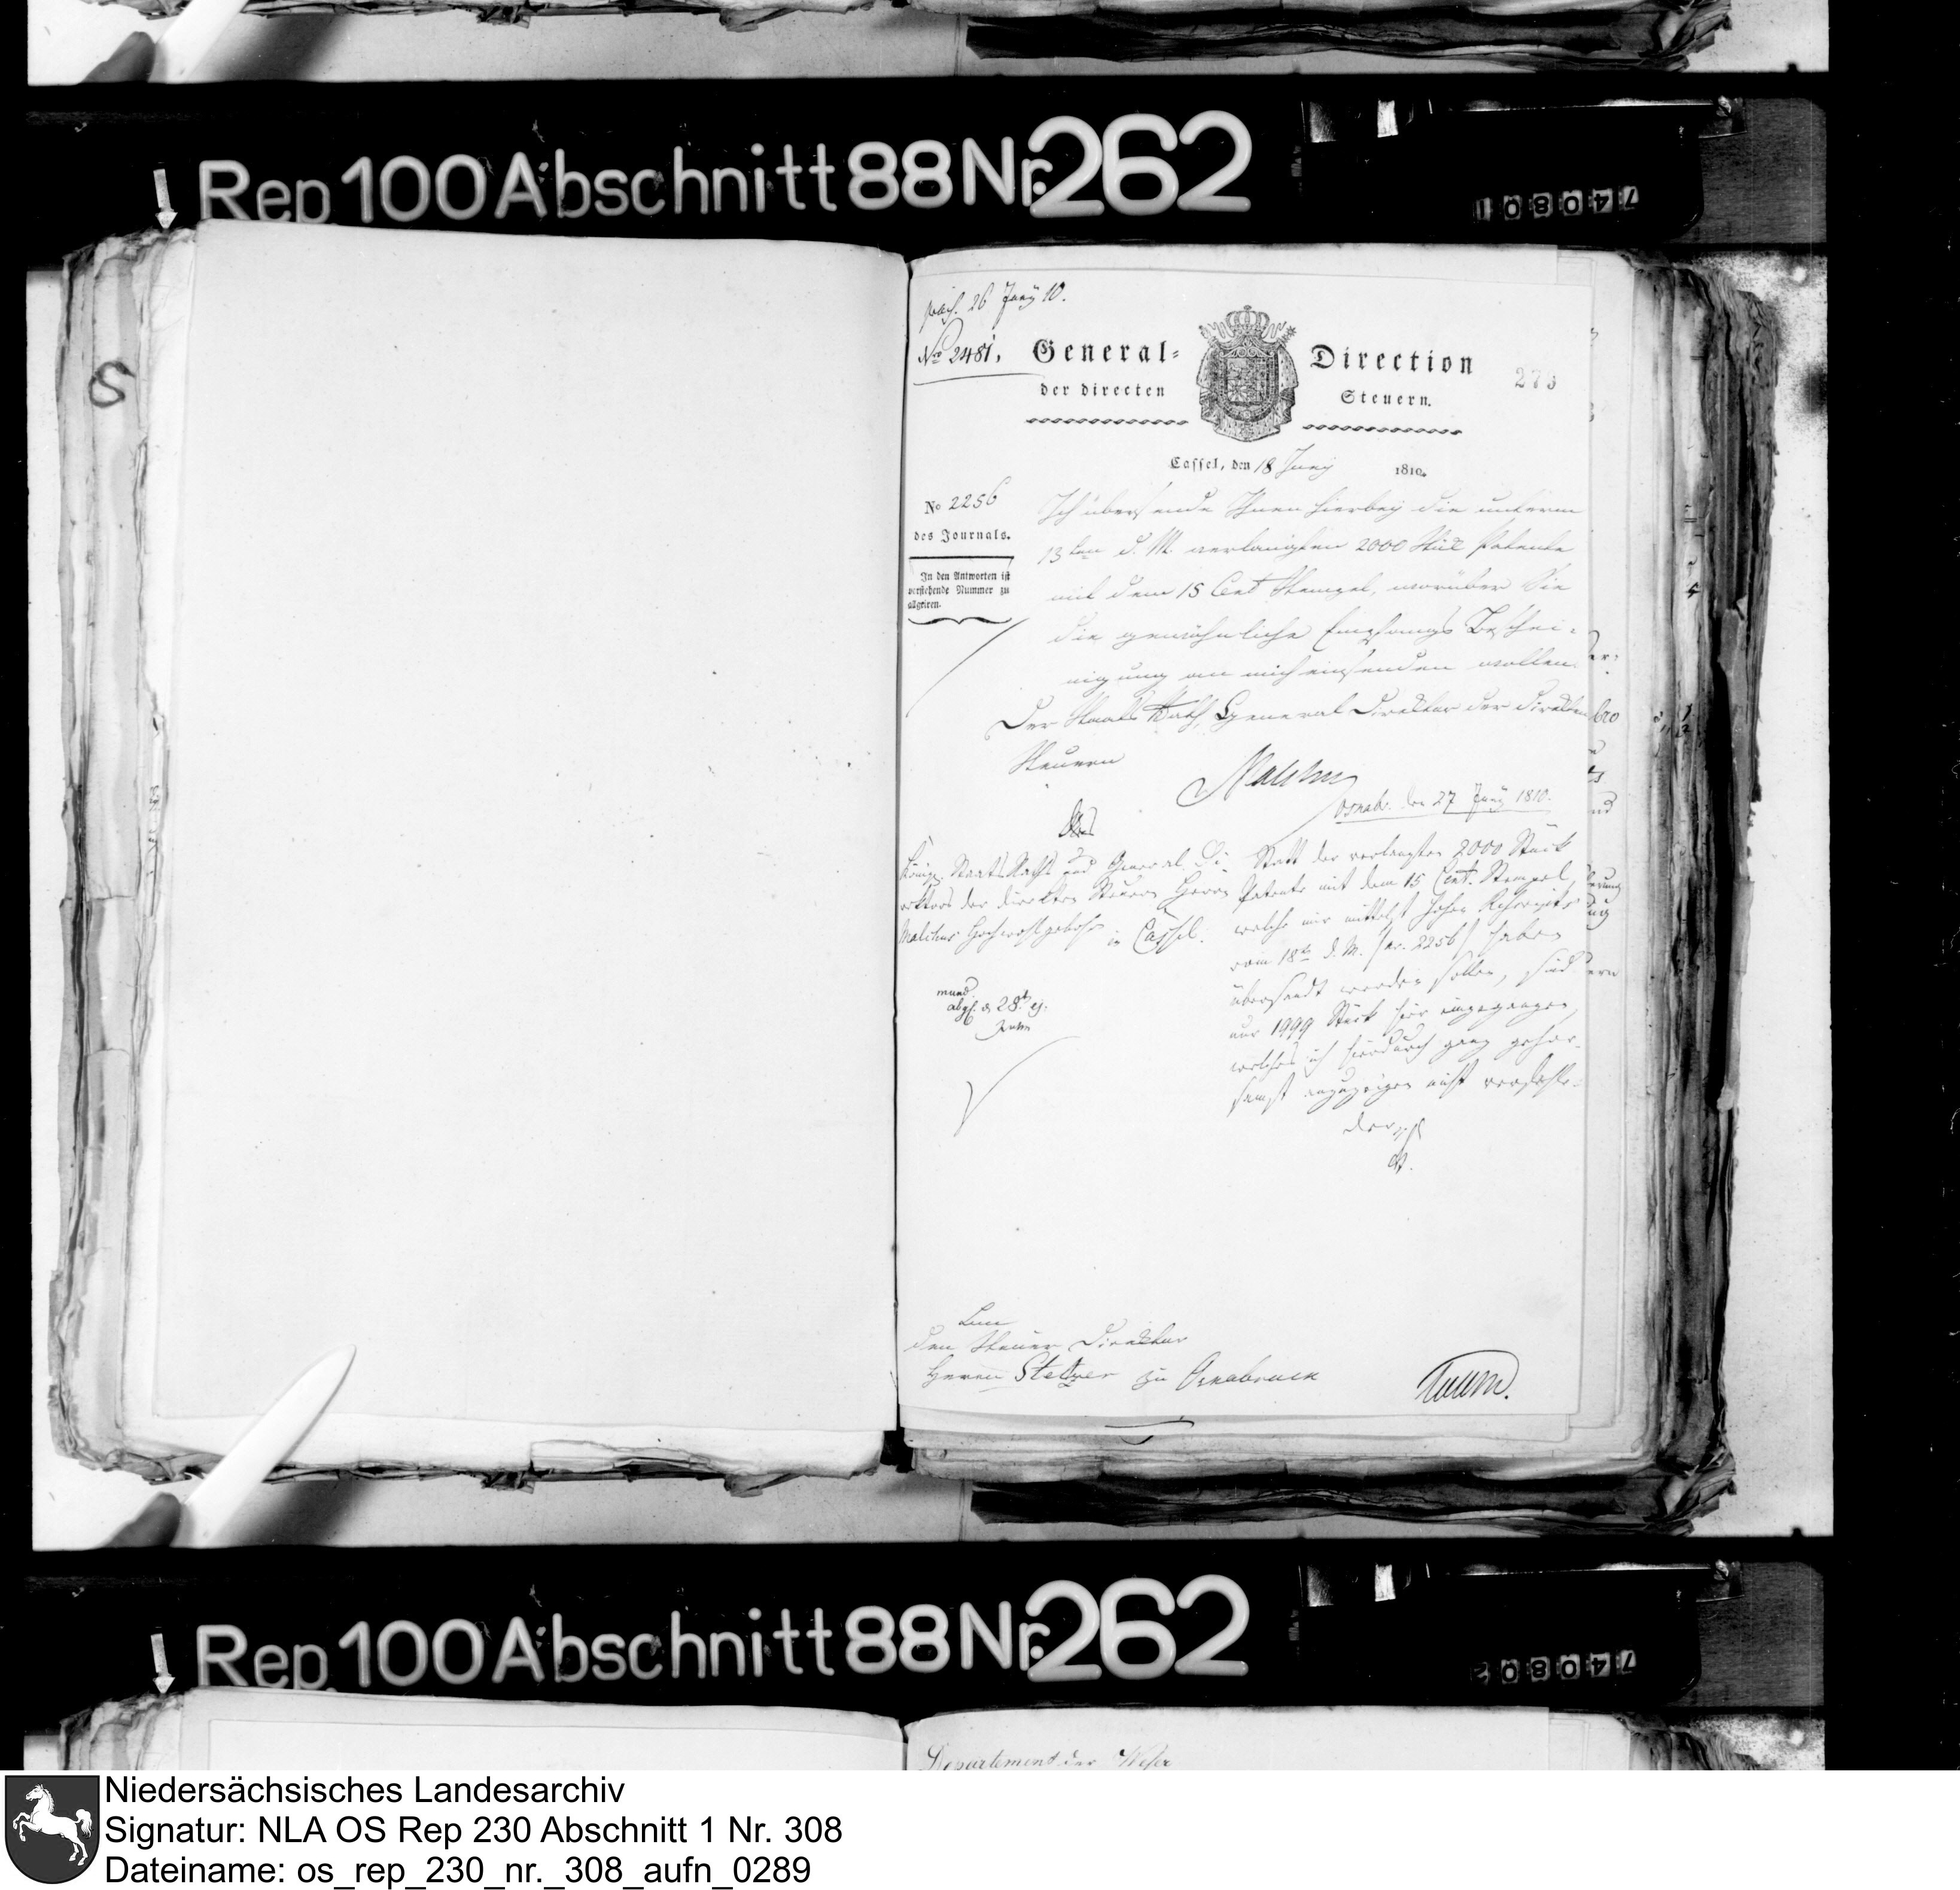 Rep 100 Abschnitt 88 Nr. 262
präs. 26 Juny 10.
No 2481.
General- Direction
der directen Steuern.
273
Cassel, den 18 Juny 1810.
No 2256
des Journals.
In den Antworten ist
vorstehende Nummer zu
allgiren.
Ich übersende Ihnen hierbey die unterm
13ten d. M. verlangten 2000 Stück Patente
mit dem 15 Cent Stempel, worüber Sie
die gewöhnliche Empfangs Beschei-
nigung an mich einsenden wollen.
Der Staats Rath, General Direktor der direkten
Steuern
Malchus
Osnabr. den 27 Juny 1810.
Des
Königl. Staats Raths und General Di-
rektors der direkten Steuern Herrn
Malchus Hochwohlgebohr in Cassel.
Statt der verlangten 2000 Stück
Patente mit dem 15 Cent. Stempel,
welche mir mittelst hohen Rescripts
vom 18ten d. M. (nr. 2256) haben
übersandt werden sollen, sind
nur 1999 Stück hier eingegangen,
welches ich hierdurch ganz gehor-
samst anzuzeigen nicht verfehle.
mund.
abgs. d. 28t ej.
Der
An
den Steuer Direktor
Herrn Steltzer zu Osnabruck
Rep. 100 Abschnitt 88 Nr. 262
Departement der Weser
Niedersächsisches Landesarchiv
Signatur: NLA OS Rep 230 Abschnitt 1 Nr. 308
Dateiname: os_rep_230_nr._308_aufn_0289